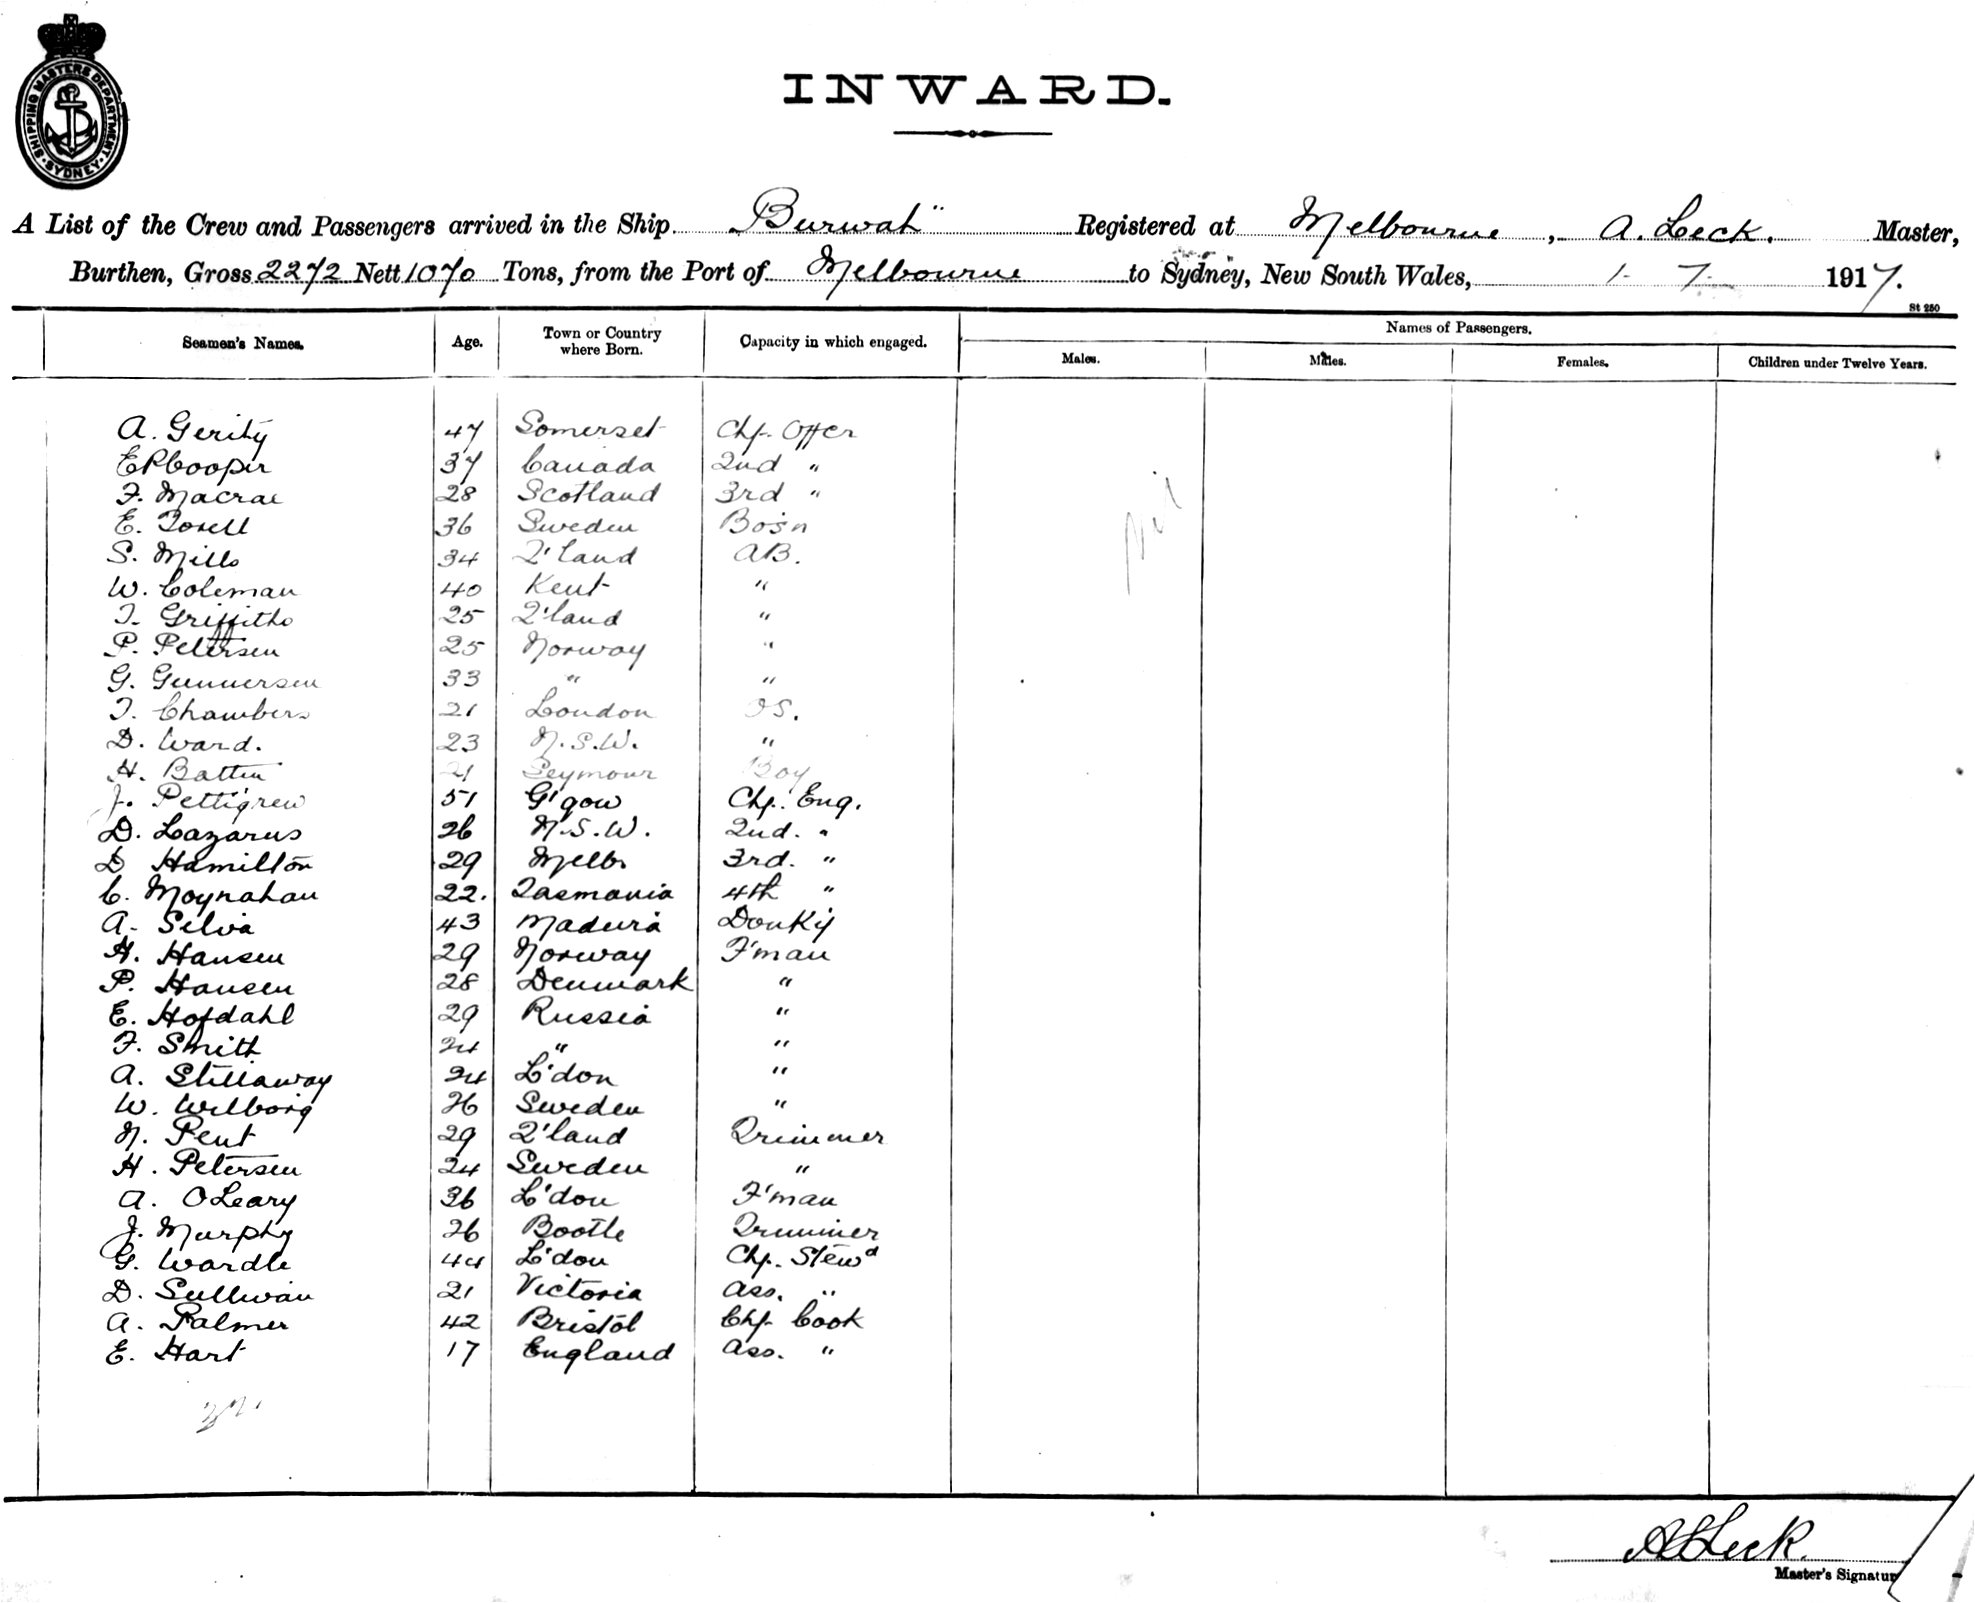 SHIPPING MASTERS DEPARTMENT
· SYDNEY ·
INWARD.
A List of the Crew and Passengers arrived in the Ship "Burwah" Registered at Melbourne, A. Leck. Master,
Burthen, Gross 2272 Nett 1070 Tons, from the Port of Melbourne to Sydney, New South Wales, 1. 7. 1917.
St 250
Seamen's Names. Age. Town or Country where Born. Capacity in which engaged. Names of Passengers.
Males. Males. Females. Children under Twelve Years.
A. Gerity 47 Somerset Chf. Offer
E P Cooper 37 Canada 2nd "
F. Macrae 28 Scotland 3rd "
E. Torell 36 Sweden Bo'sn
S. Mills 34 Q'land AB.
W. Coleman 40 Kent "
T. Griffiths 25 Q'land "
P. Petersen 25 Norway "
G. Gunnersen 33 " "
T. Chambers 21 London OS.
D. Ward. 23 N.S.W. "
H. Batten 21 Seymour Boy
J. Pettigrew 51 G'gow Chf. Eng.
D. Lazarus 26 N.S.W. 2nd. "
D Hamilton 29 Melb. 3rd. "
C. Moynahan 22. Tasmania 4th "
A. Silva 43 Madura Donky
H. Hansen 29 Norway F'man
P. Hansen 28 Denmark "
E. Hofdahl 29 Russia "
F. Smith 24 " "
A. Stillaway 24 L'don "
W. Wilborg 26 Sweden "
N. Pent 29 Q'land Trimmer
H. Petersen 24 Sweden "
A. O'Leary 36 L'don F'man
J. Murphy 26 Bootle Trimmer
G. Wardle 44 L'don Chf. Stewd
D. Sullivan 21 Victoria Ass. "
A. Palmer 42 Bristol Chf Cook
E. Hart 17 England Ass. "
Nil
32.
A Leck.
Master's Signatur